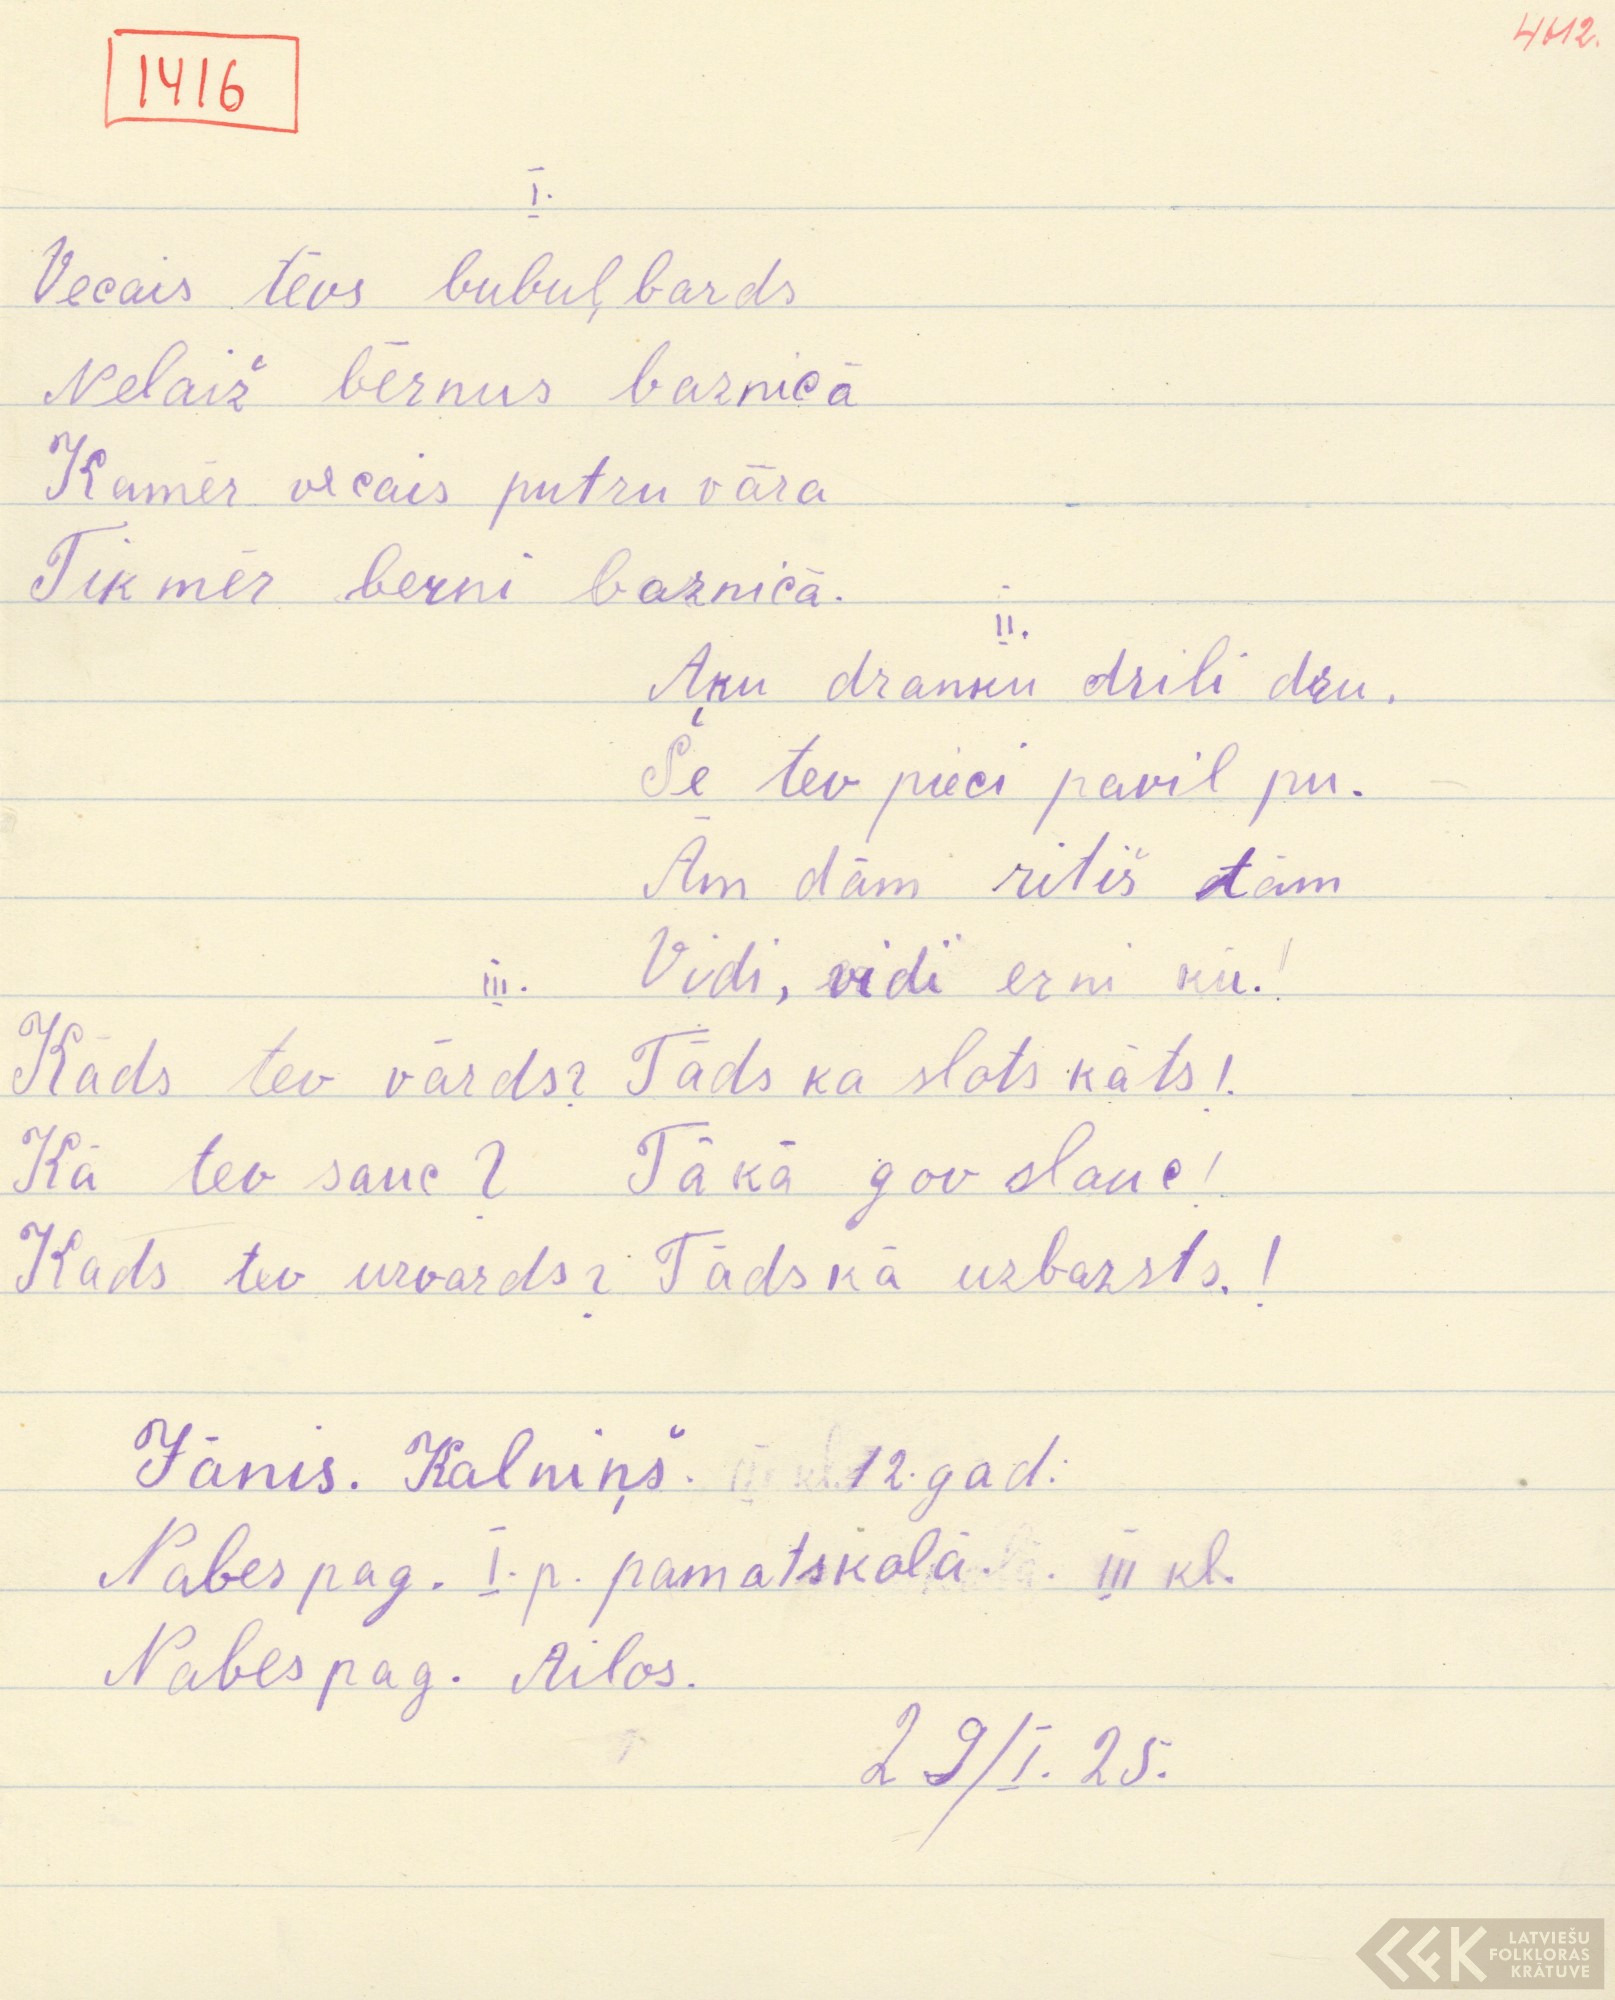 4612.
1416
I.
Vecais tēvs bubuļbards
Nelaiž bērnus baznicā
Kamēr vecais putru vāra
Tikmēr berni baznicā.
II.
Aķu dranku drili dru.
Še tev pieci pavil pu.
Ām dām ritiš dām
Vidi, vidi erni kū.!
III.
Kāds tev vārds? Tāds ka slots kāts!
Kā tev sauc? Tākā gov slauc!
Kāds tev uzvards? Tāds kā uzbazsts.!
Jānis. Kalniņš. 12.gad.
Nabes pag. I. p. pamatskolā. III kl.
Nabes pag. Ailos.
29/I. 25.
LATVIEŠU
FOLKLORAS
KRĀTUVE